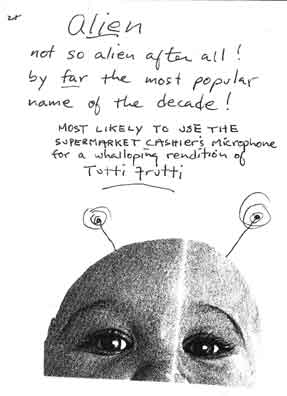 28
alien
not so alien after all!
by far the most popular
name of the decade!
MOST LIKELY TO USE THE
SUPERMARKET CASHIER'S MICROPHONE
for a whalloping rendition of
Tutti Frutti